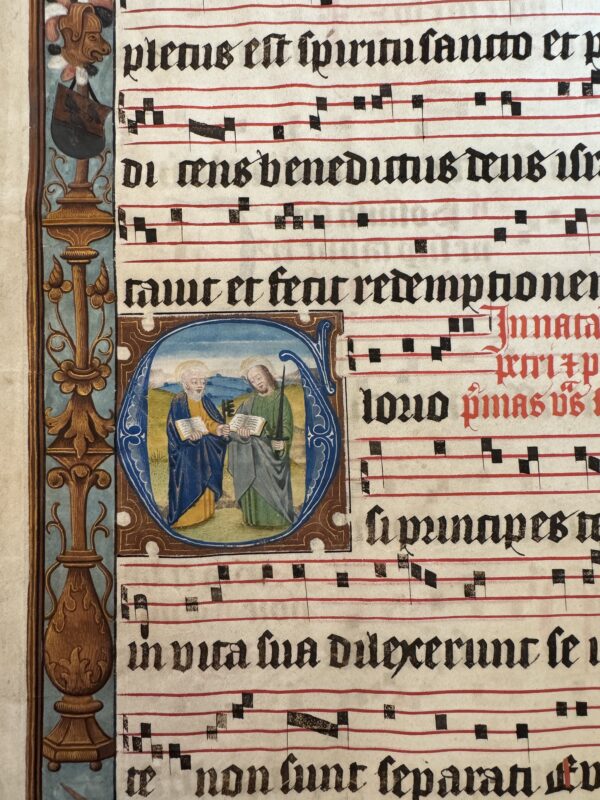 pletus est spiritu sancto et p
di cens benedictus deus isr
tauit et fecit redemptionem
In nata
petri ⁊ p
Glorio pͥmas vs̄
si principes te
in vita sua dilexerunt se i
te non sunt separati Eu